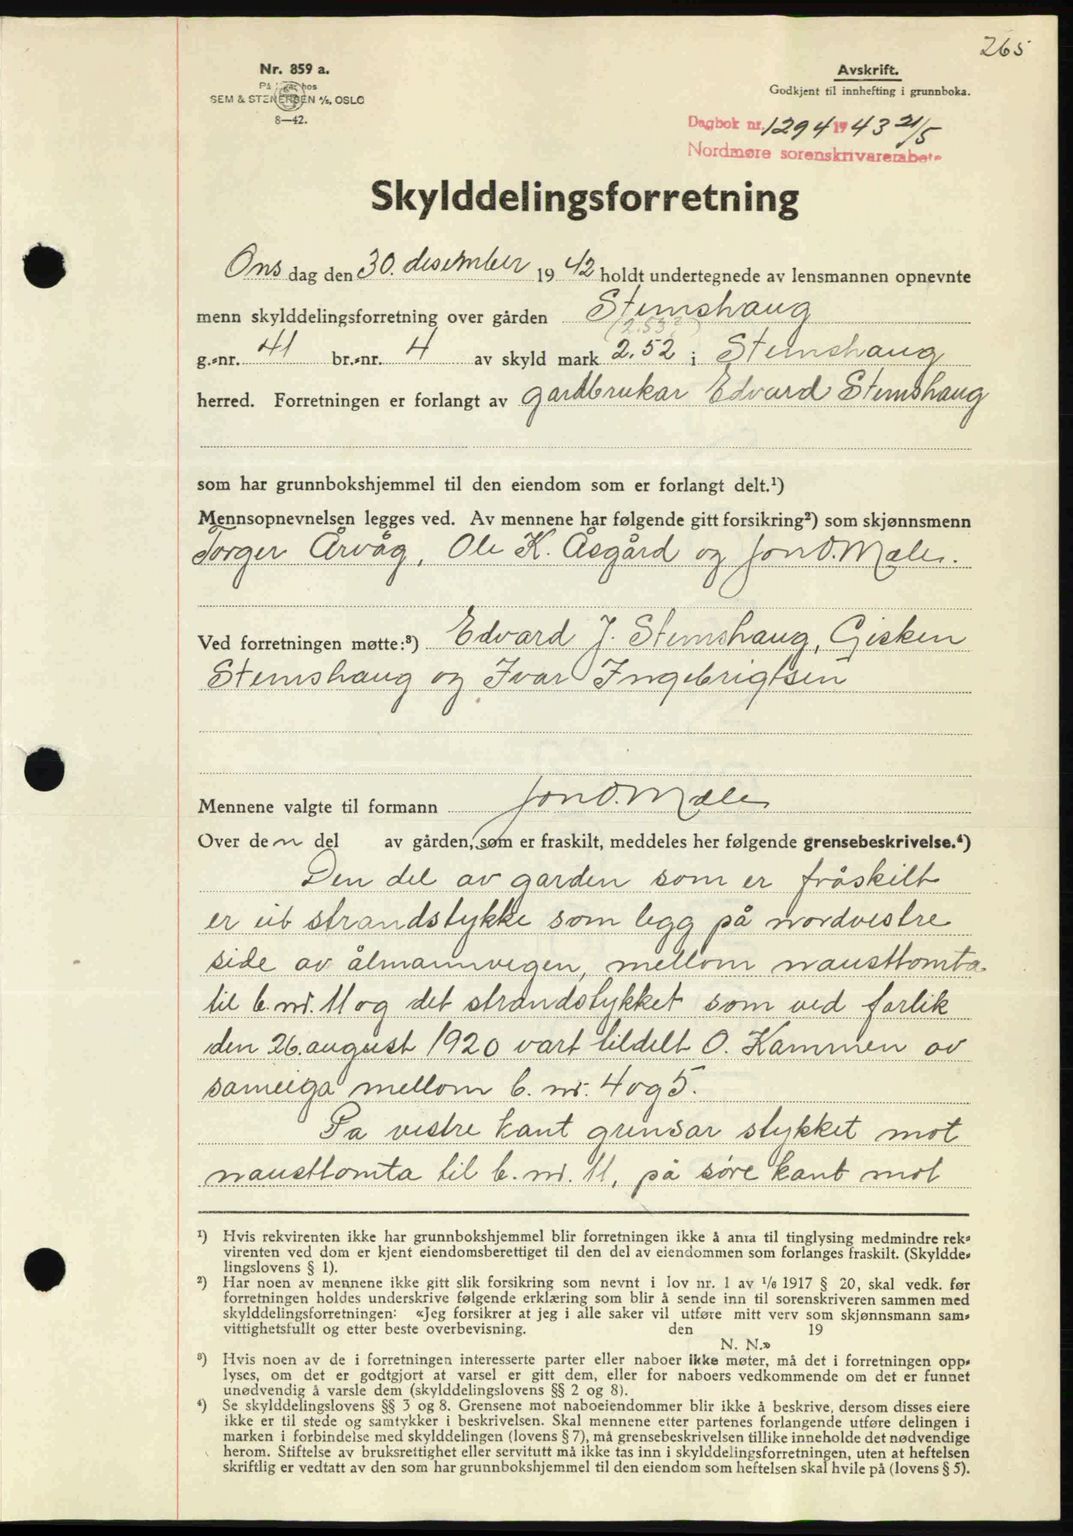 265
Nr. 859 a.
SEM & STENERSEN A/S, OSLO
8—42.
Avskrift.
Godkjent til innhefting i grunnboka.
Dagbok nr. 1294 1943 21/5
Nordmøre sorenskrivarembete
Skylddelingsforretning
Onsdag den 30. desember 1942 holdt undertegnede av lensmannen opnevnte
menn skylddelingsforretning over gården Stemshaug
(2.53?)
g.-nr. 41 br.-nr. 4 av skyld mark 2,52 i Stemshaug
herred. Forretningen er forlangt av gardbrukar Edvard Stemshaug
som har grunnbokshjemmel til den eiendom som er forlangt delt.¹)
Mennsopnevnelsen legges ved. Av mennene har følgende gitt forsikring²) som skjønnsmenn
Torger Årvåg, Ole K. Åsgård og Jon O. Mæle.
Ved forretningen møtte:³) Edvard J. Stemshaug, Gisken
Stemshaug og Ivar Ingebrigtsen
Mennene valgte til formann Jon O. Mæle
Over den del av gården, som er fraskilt, meddeles her følgende grensebeskrivelse.⁴)
Den del av garden som er fråskilt
er eit strandstykke som ligg på nordvestre
side av ålmannvegen, mellom nausttomta
til b.nr. 11 og det strandstykket som ved forlik
den 26. august 1920 vart tildelt O. Kammen av
sameiga mellom b. nr. 4 og 5.
På vestre kant grensar stykket mot
nausttomta til b. nr. 11, på søre kant mot
¹) Hvis rekvirenten ikke har grunnbokshjemmel blir forretningen ikke å anta til tinglysing medmindre rek-
virenten ved dom er kjent eiendomsberettiget til den del av eiendommen som forlanges fraskilt. (Skyldde-
lingslovens § 1).
²) Har noen av mennene ikke gitt slik forsikring som nevnt i lov nr. 1 av 1/6 1917 § 20, skal vedk. før
forretningen holdes underskrive følgende erklæring som blir å sende inn til sorenskriveren sammen med
skylddelingsforretningen: «Jeg forsikrer at jeg i alle saker vil utføre mitt verv som skjønnsmann sam-
vittighetsfullt og etter beste overbevisning. den 19
N. N.»
³) Hvis noen av de i forretningen interesserte parter eller naboer ikke møter, må det i forretningen opp-
lyses, om det er godtgjort at varsel er gitt dem, eller for naboers vedkommende om det er funnet
unødvendig å varsle dem (skylddelingslovens §§ 2 og 8).
⁴) Se skylddelingslovens §§ 3 og 8. Grensene mot naboeiendommer blir ikke å beskrive, dersom disses eiere
ikke er til stede og samtykker i beskrivelsen. Skal mennene etter partenes forlangende utføre delingen i
marken i forbindelse med skylddelingen (lovens § 7), må grensebeskrivelsen tillike inneholde det nødvendige
herom. Stiftelse av bruksrettighet eller servitutt må ikke tas inn i skylddelingsforretningen, uten at heftelsen
skriftlig er vedtatt av den som har grunnbokshjemmel til den eiendom som heftelsen skal hvile på (lovens § 5).